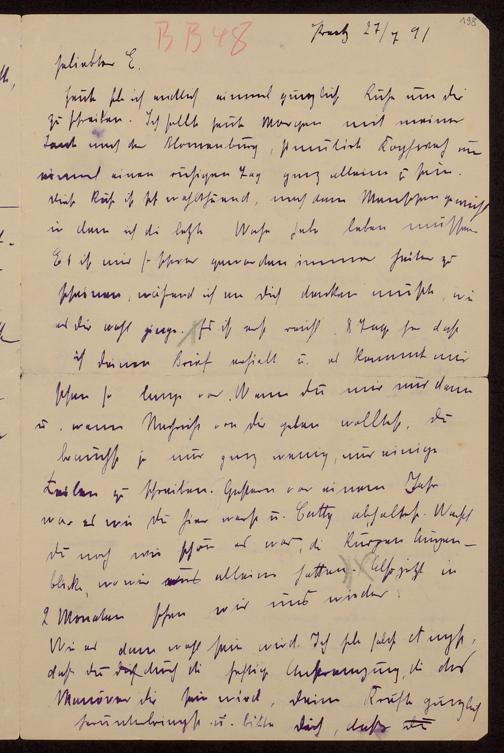 198
BB48
27/7 91
Geliebter E.
Heute hab ich endlich einmal gänzlich Ruhe um dir
zu schreiben. Ich sollte heute Morgen mit meiner
nach der heuchelte Kopfweh um
einmal einen ruhigen Tag ganz allein zu sein.
Diese Ruh ist so wohlthuend, nach dem Menschengewühl
in dem ich die letzte Woche habe leben müssen
Es ist mir so schwer geworden immer heiter zu
scheinen, während ich an Dich denken musste, wie
es dir wohl ginge. Es ist erst 8 Tage her dass
ich deinen Brief erhielt u. es kommt mir
schon so lange vor. Wenn du mir nur dann
u. wann Nachricht von dir geben wolltest, du
brauchst ja nur ganz wenig, nur einige
Zeilen zu schreiben. Gestern vor einem Jahr
war es wie du hier warst u. Catty abholtest. Weisst
du noch wie schön es war, die kurzen Augen-
blicke, wo wir uns allein hatten. Also jetzt in
2 Monaten sehen wir uns wieder.
Wie es dann wohl sein wird. Ich hab solche Angst,
dass du dich durch die heftige Anstrengung, die das
Manöver dir sein wird, deine Kräfte gänzlich
herunterbringst u. bitte dich, dass du